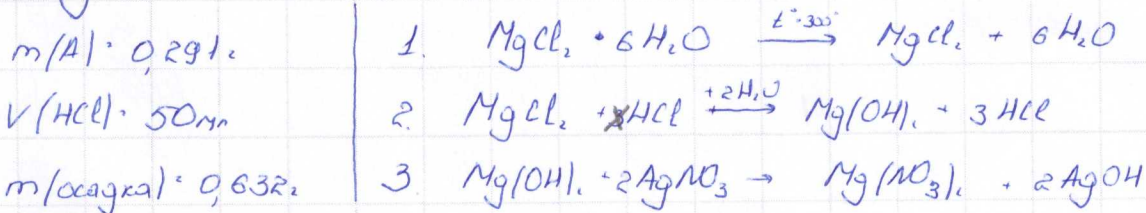 m(A) = 0,291г
V(HCl) = 50мл
m(осадка) = 0,632г
1. MgCl₂ • 6H₂O →(t°=300°) MgCl₂ + 6H₂O
2. MgCl₂ + HCl →(+2H₂O) Mg(OH)₂ + 3HCl
3. Mg(OH)₂ + 2AgNO₃ → Mg(NO₃)₂ + 2AgOH